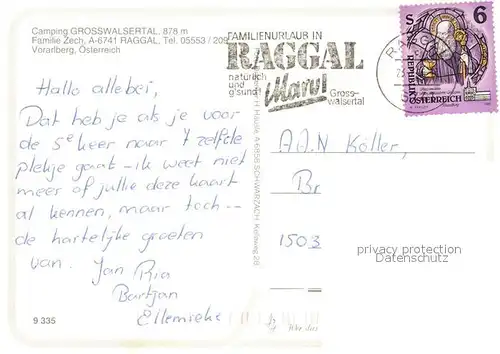 Camping GROSSWALSERTAL, 878 m
Familie Zech, A-6741 RAGGAL, Tel. 05553 / 209
Vorarlberg, Österreich
FAMILIENURLAUB IN
RAGGAL
natürlich
und
g'sund!
Gross-
walsertal
S 6
REPUBLIK
ÖSTERREICH
Hallo allebei,
Dat heb je als je voor
de 5e keer naar 't zelfde
plekje gaat – ik weet niet
meer of jullie deze kaart
al kennen, maar toch --
de hartelijke groeten
van. Jan Ria
Bartjan
Ellemieke
A-6858 SCHWARZACH
A.A.N Koller,
Br
1503
privacy protection
Datenschutz
9 335